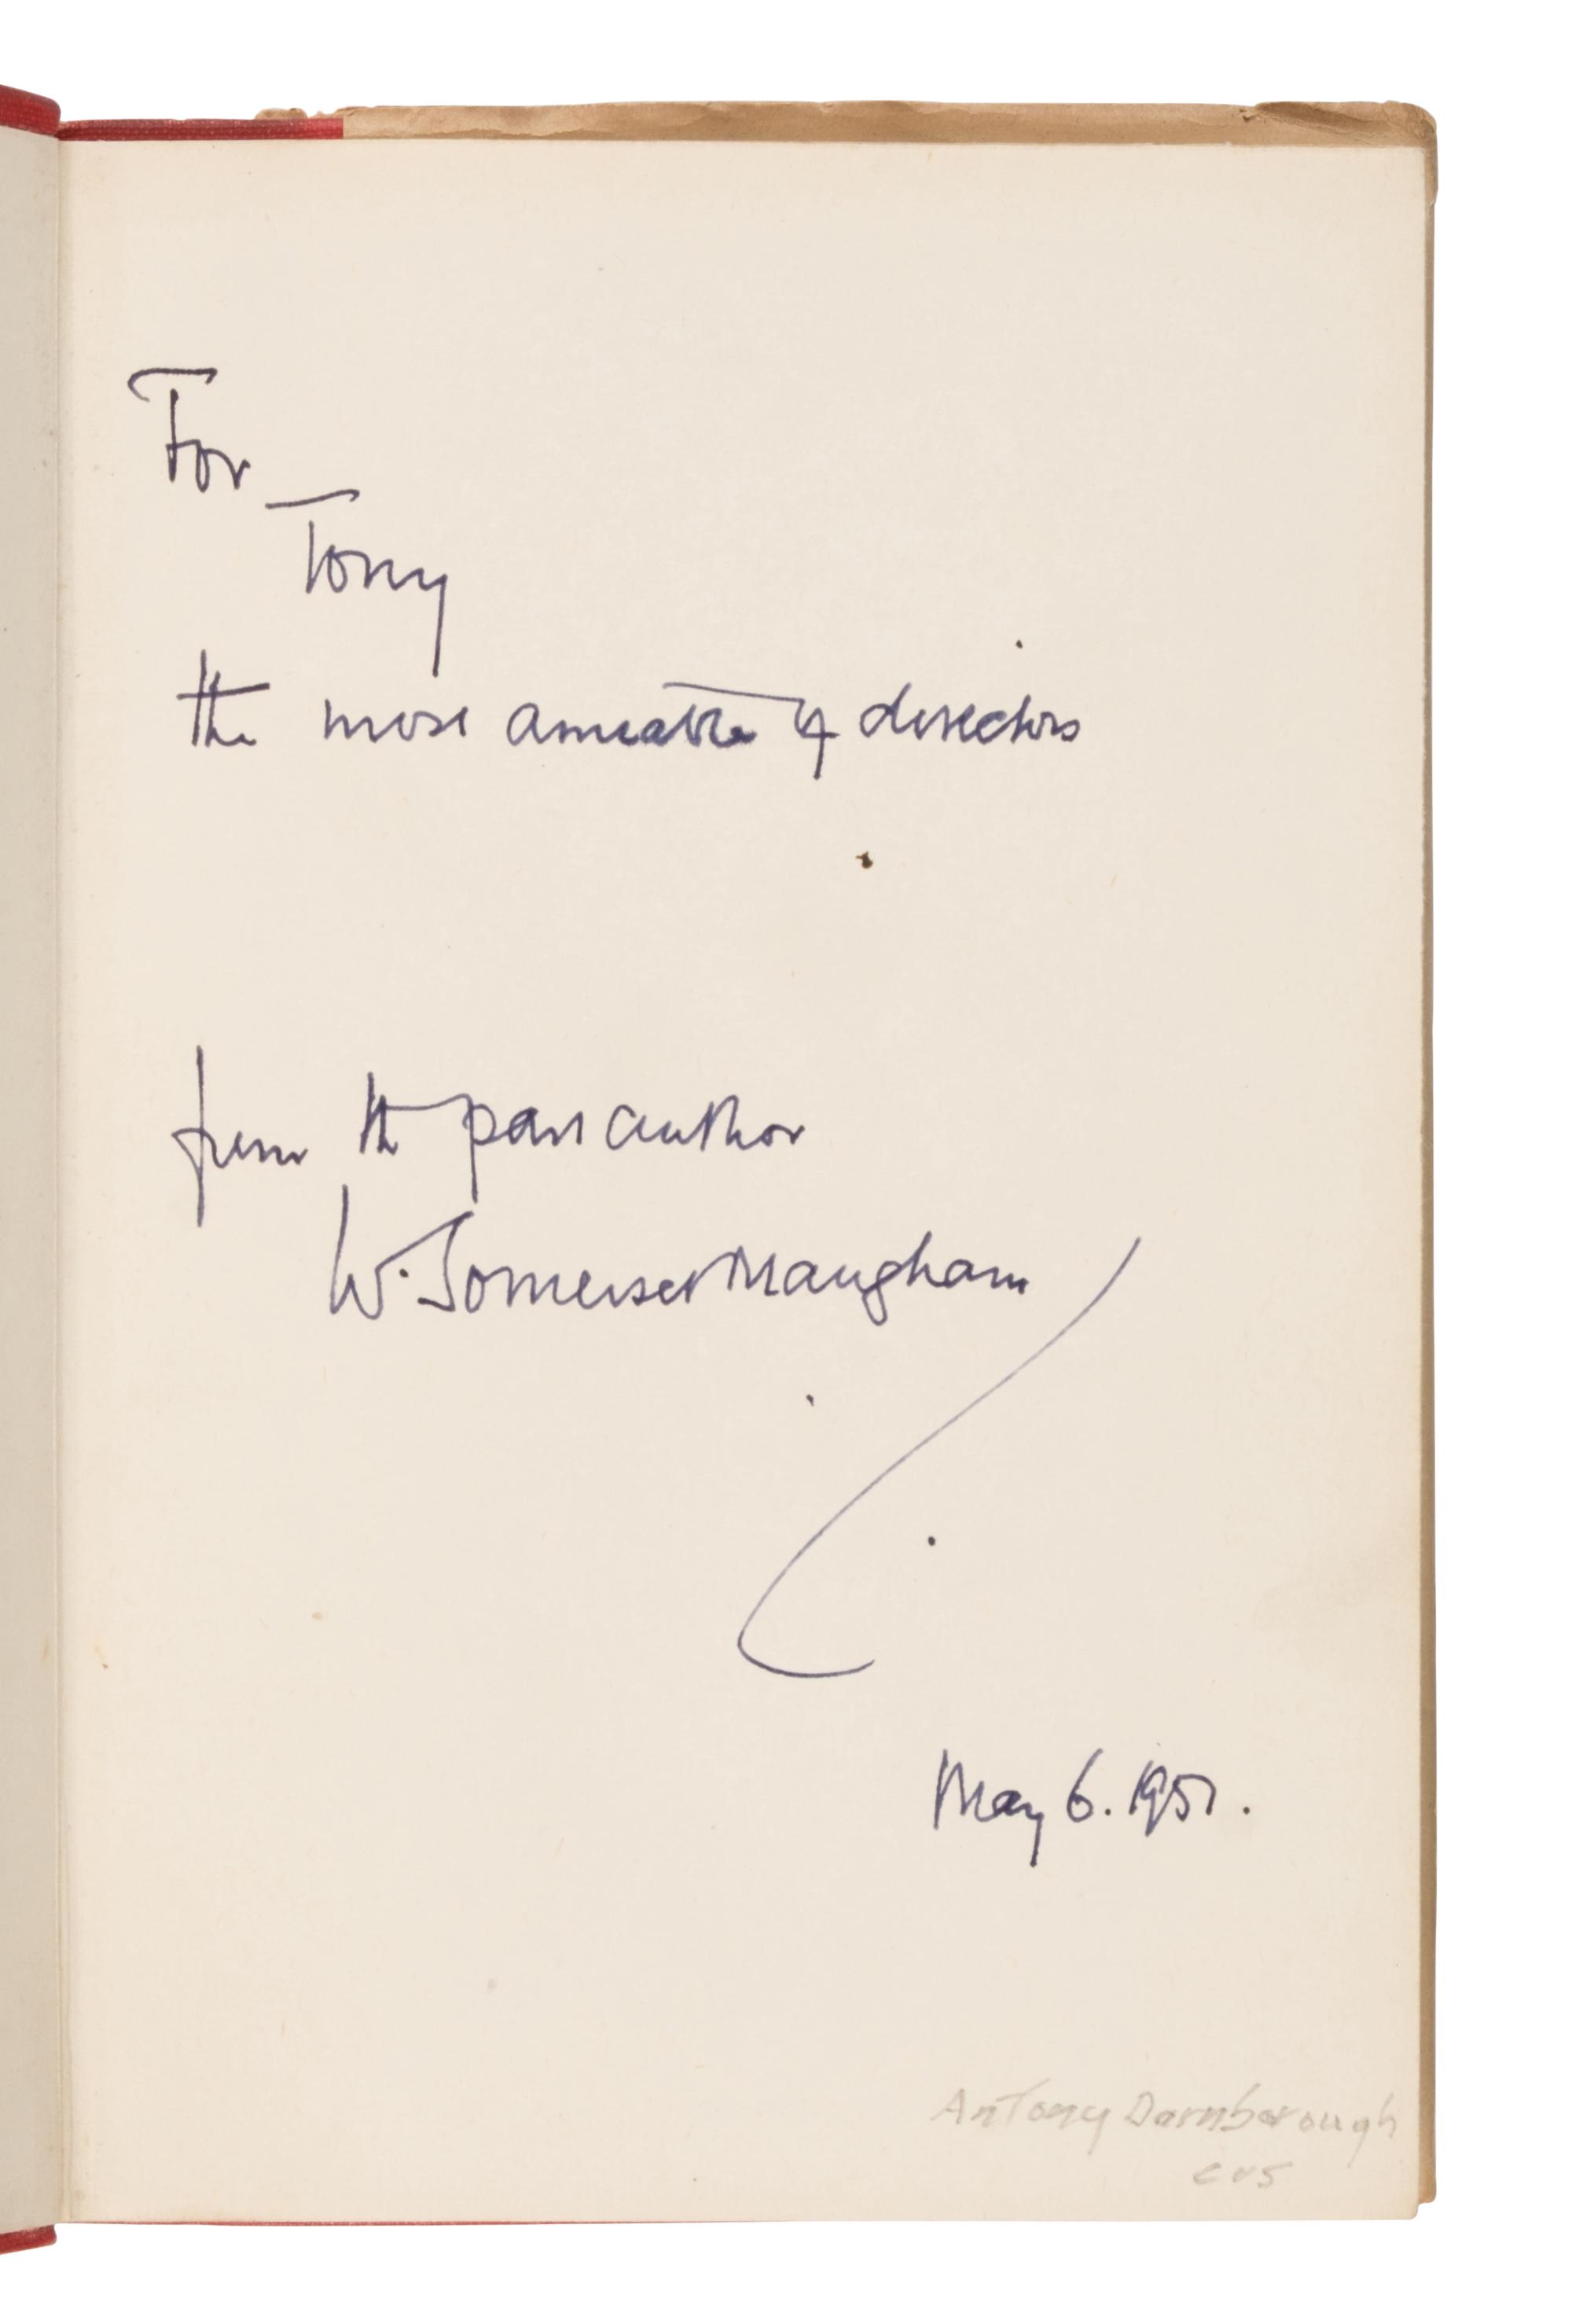 For
Tony
the most amiable of directors
from the part author
W. Somerset Maugham
May 6. 1951.
Antony Darnborough